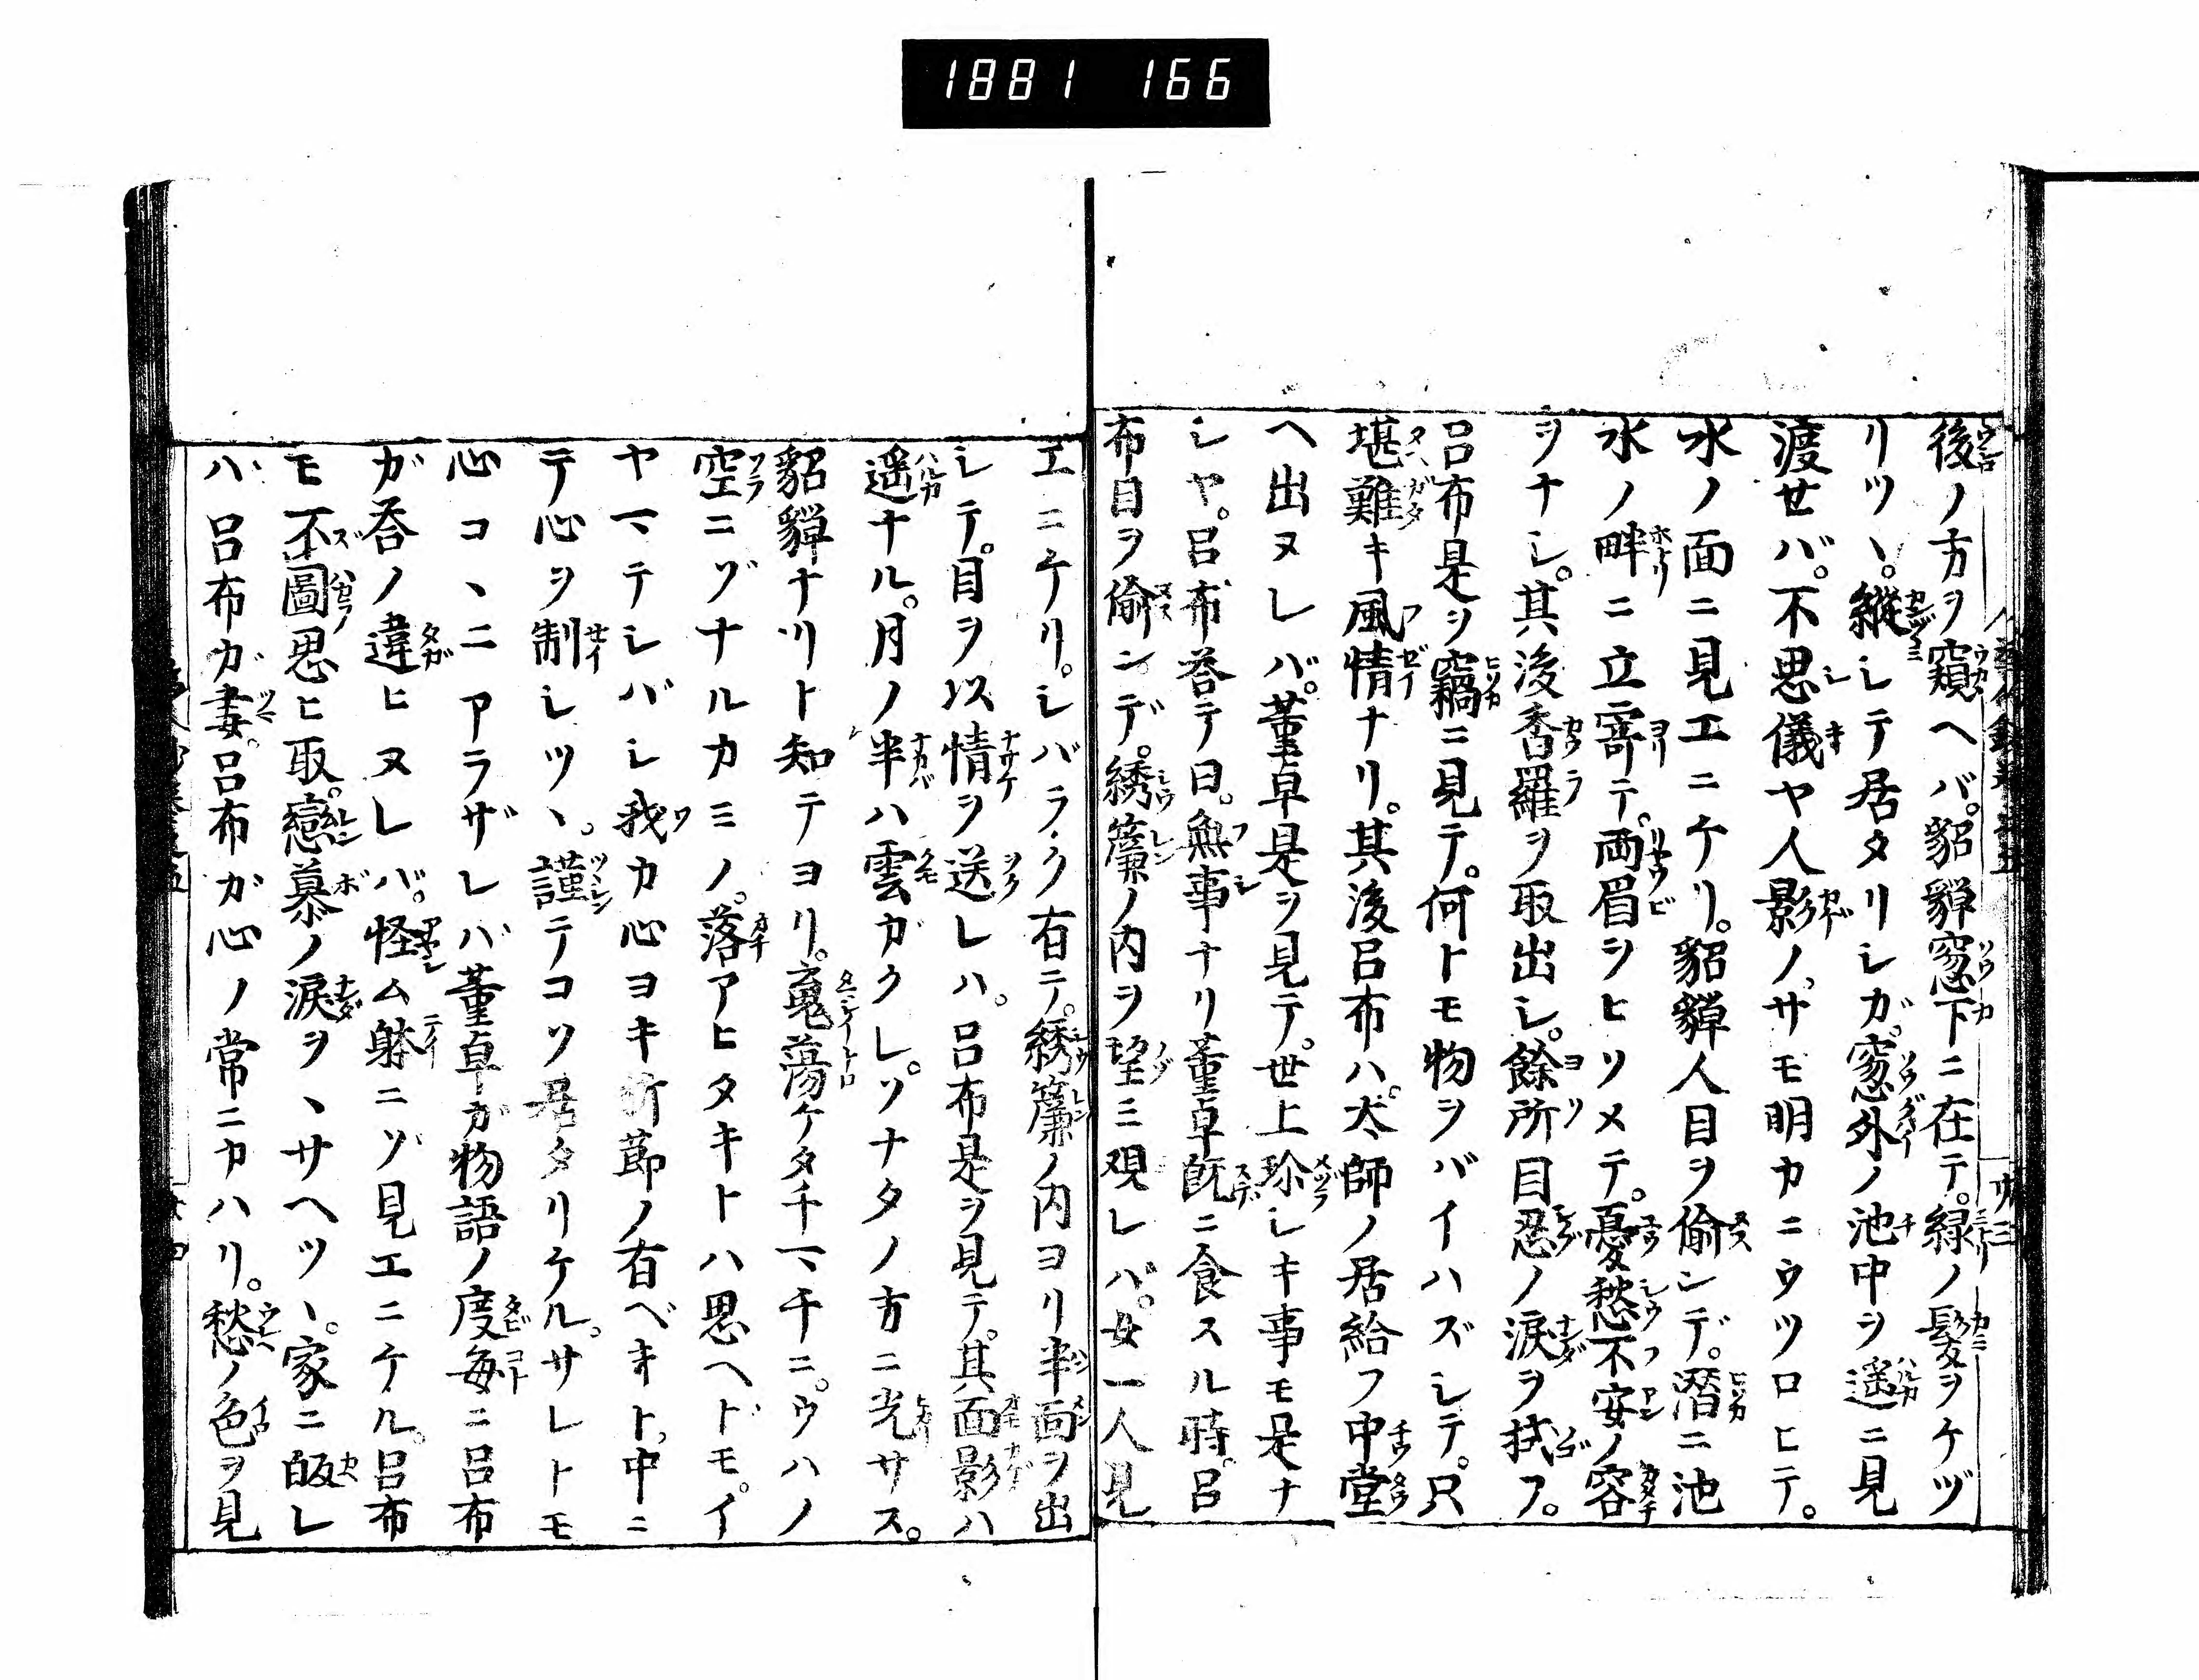 1881 166
後ノ方ヲ窺ヘバ。貂蟬窓下ニ在テ。緑ノ髮ヲケヅ
リツヽ。縱シテ居タリシガ。窓外ノ池中ヲ遥ニ見
渡セバ。不思儀ヤ人影ノ。サモ明カニウツロヒテ。
水ノ面ニ見エニケリ。貂蟬人目ヲ偷ンデ。潛ニ池
水ノ畔ニ立寄テ。両眉ヲヒソメテ。憂愁不安ノ容
ヲナシ。其後香羅ヲ取出シ。餘所目忍ノ涙ヲ拭フ。
呂布是ヲ竊ニ見テ。何トモ物ヲバイハズシテ。只
堪難キ風情ナリ。其後呂布ハ。太師ノ居給フ中堂
ヘ出ヌレバ。董卓是ヲ見テ。世上珎シキ事モ是ナ
シヤ。呂布荅テ曰。無事ナリ董卓既ニ食スル時。呂
布目ヲ偷ンデ。綉簾ノ内ヲ望ミ覌レバ。女一人見
エニケリ。シバラク有テ。綉簾ノ内ヨリ半面ヲ出
シテ。目ヲ以情ヲ送レハ。呂布是ヲ見テ。其面影ハ
遥ナル。月ノ半ハ雲ガクレ。ソナタノ方ニ光サス。
貂蟬ナリト知テヨリ。蕩ケタチマチニ。ウハノ
空ニゾナルカミノ。落アヒタキトハ思ヘドモ。イ
ヤマテシバシ我カ心ヨキ折節ノ有ベキト。中ニ
テ心ヲ制シツヽ。謹テコソ居タリケル。サレトモ
心コヽニアラザレバ董卓ガ物語ノ度毎ニ呂布
ガ荅ノ違ヒヌレバ。怪ム躰ニゾ見エニケル。呂布
モ不圖思ヒ取。戀慕ノ涙ヲヽサヘツヽ。家ニ皈レ
バ呂布ガ妻。呂布ガ心ノ常ニカハリ。愁ノ色ヲ見